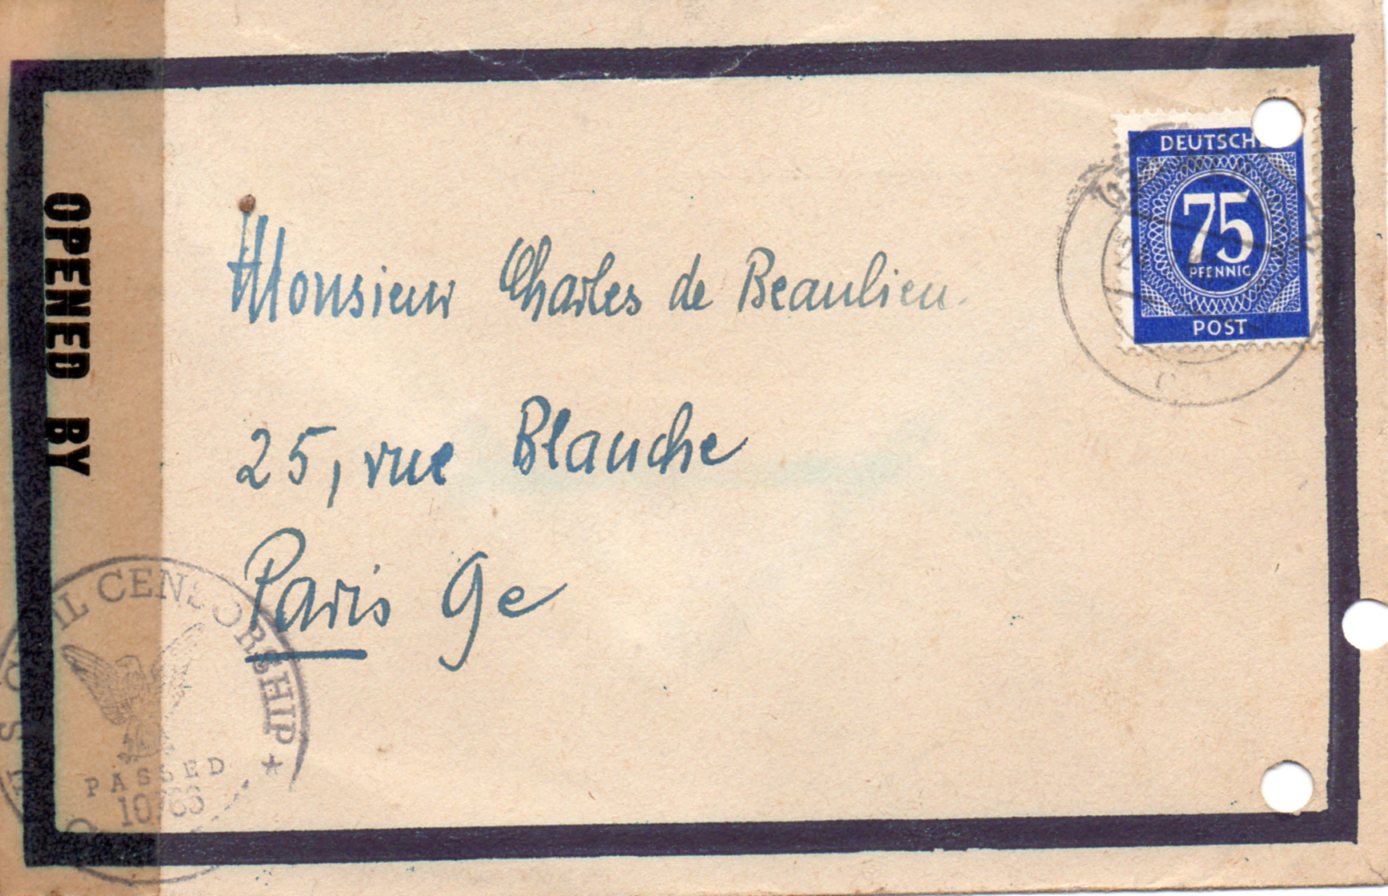 OPENED BY
Monsieur Charles de Beaulieu.
25, rue Blanche
Paris 9e
DEUTSCHE
75
PFENNIG
POST
CIVIL CENSORSHIP *
PASSED